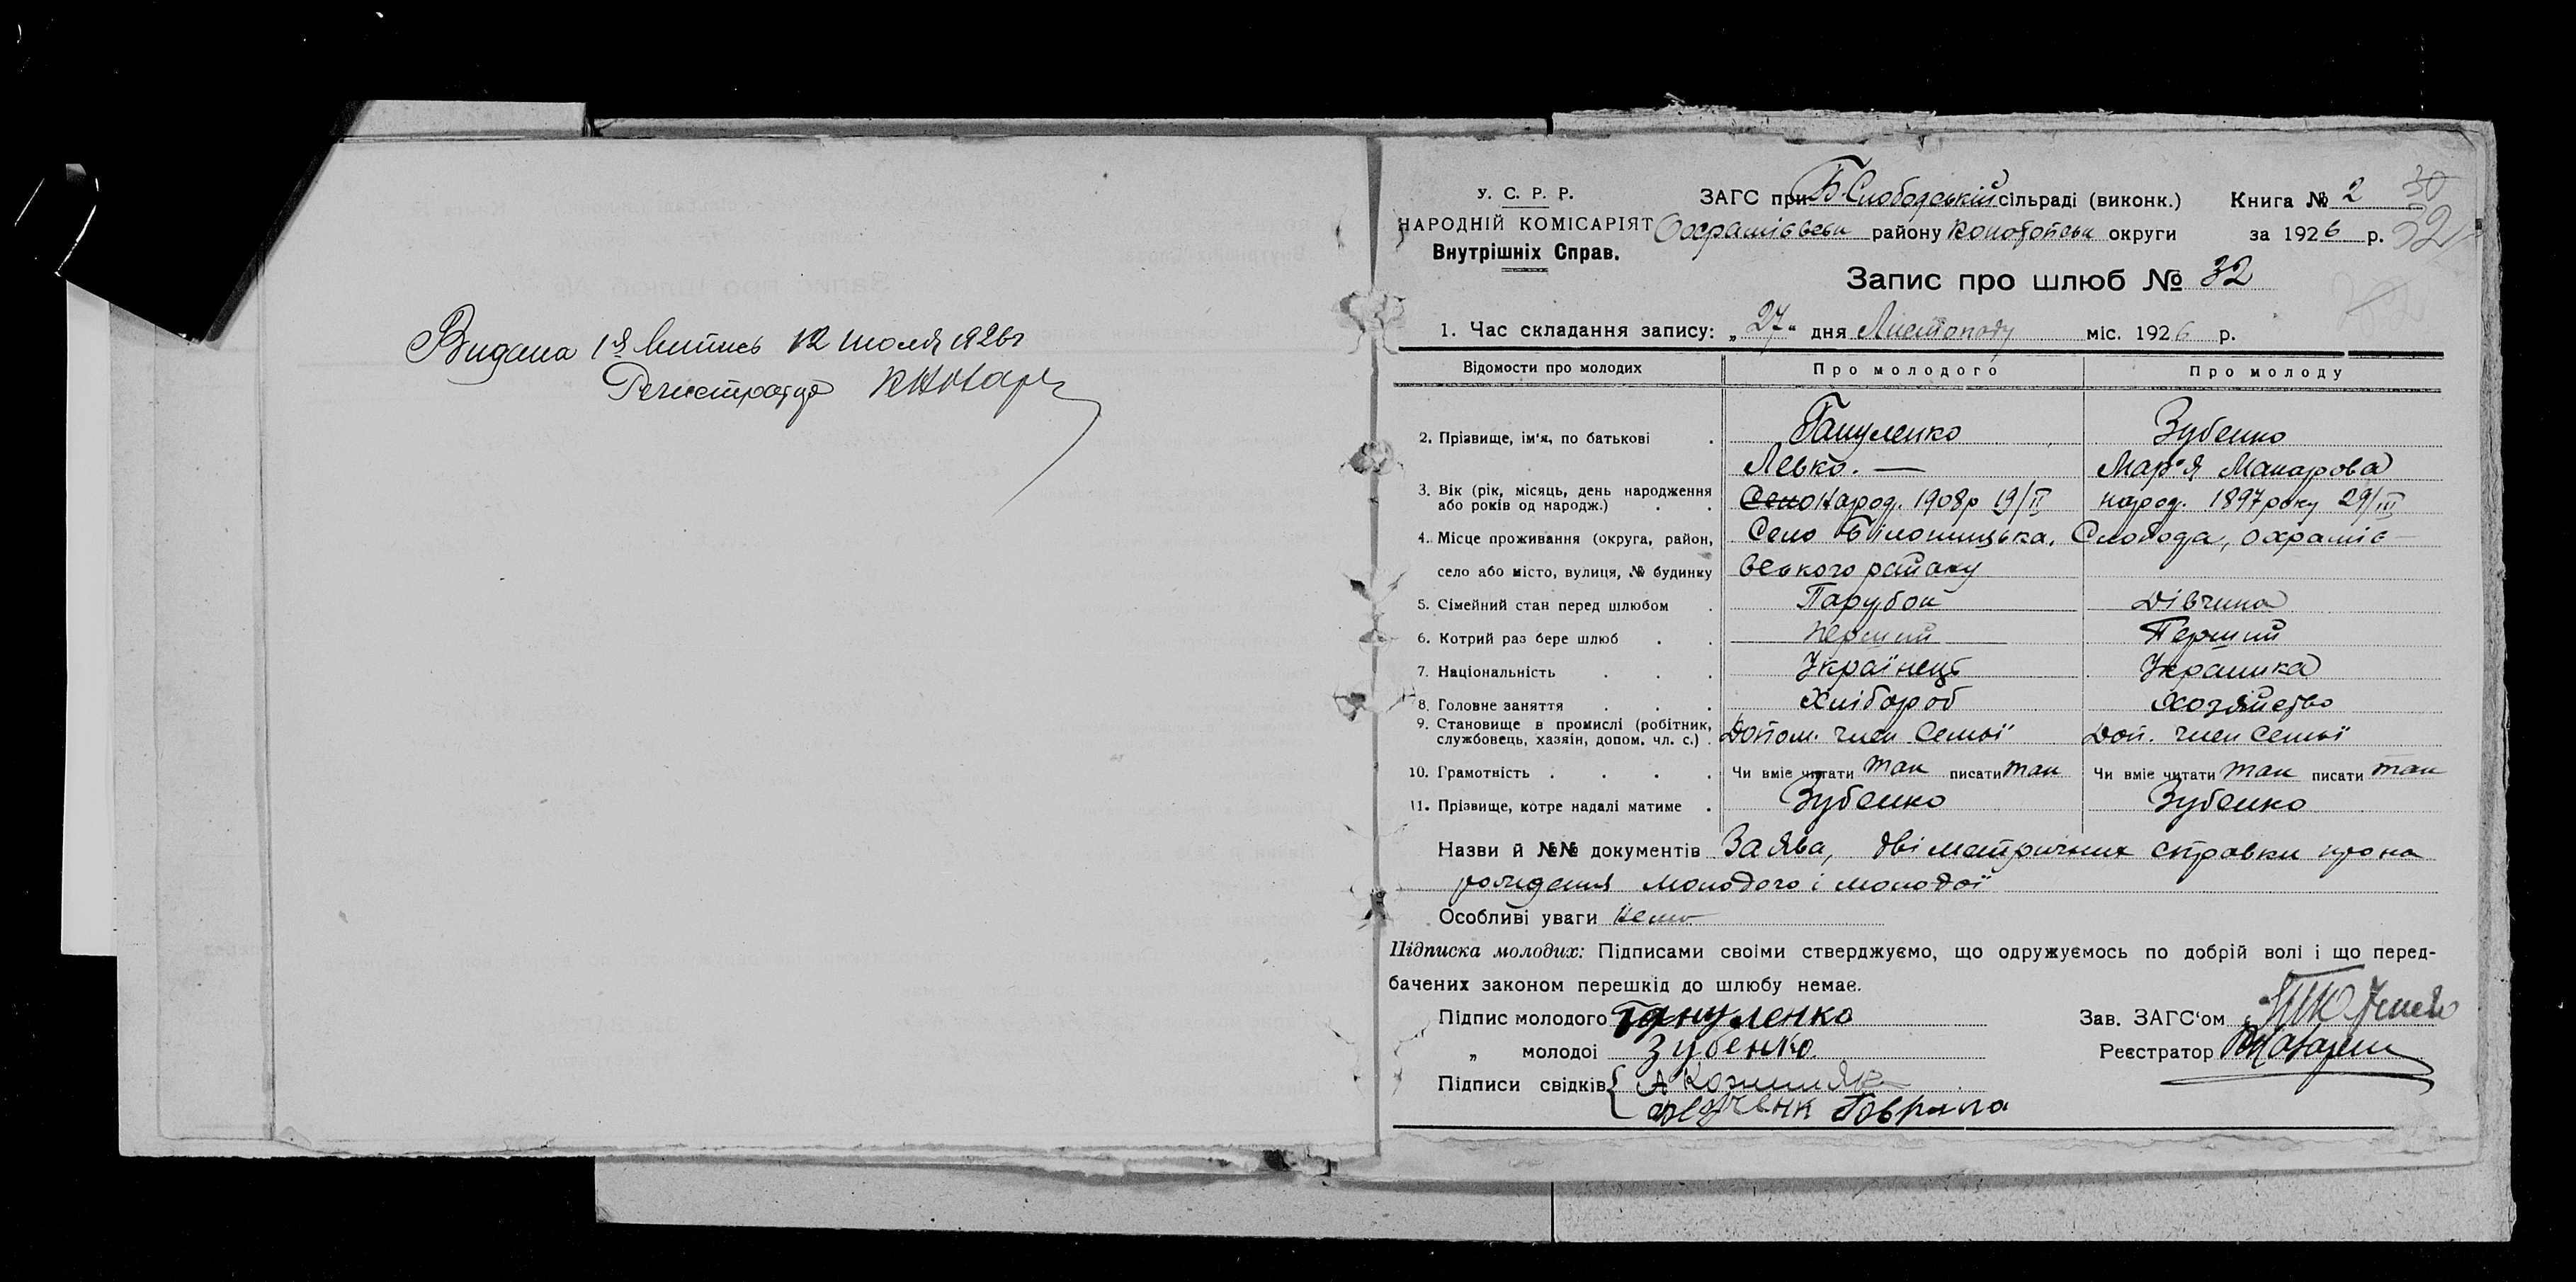 Видана 1й випись 12 июля 1926г
Регистратор
У. С. Р. Р.
НАРОДНІЙ КОМІСАРІЯТ
Внутрішніх Справ.
ЗАГС при Б-Слободській сільраді (виконк.) Книга № 2
30
Охрамієвськ району Конотопськ округи за 1926 р.
32
Запис про шлюб № 32
1. Час складання запису: „27“ дня Листопаду міс. 1926 р.
Відомости про молодих Про молодого Про молоду
2. Прізвище, ім'я, по батькові . Гануленко Зубенко
Левко. — Мар'я Макарова
3. Вік (рік, місяць, день народження
або років од народж.) . . Село Народ. 1908р 19/II народ. 1897 року 29/III
4. Місце проживання (округа, район, Село Білопицька, Слобода, Охраміє-
село або місто, вулиця, № будинку вського району
5. Сімейний стан перед шлюбом . Парубок Дівчина
6. Котрий раз бере шлюб . . Перший Перший
7. Національність . . . Українець Українка
8. Головне заняття . . . Хлібороб Хозяйство
9. Становище в промислі (робітник,
службовець, хазяін, допом. чл. с.) . Допом. член семьї Доп. член семьї
10. Грамотність . . . . Чи вміє читати так писати так Чи вміє читати так писати так
11. Прізвище, котре надалі матиме . Зубенко Зубенко
Назви й №№ документів Заява, дві метричних справки про на
рождения молодого і молодої
Особливі уваги нема
Підписка молодих: Підписами своіми стверджуємо, що одружуємось по добрій волі і що перед-
бачених законом перешкід до шлюбу немає.
Підпис молодого Гануленко Зав. ЗАГС‘ом
„ молодоі Зубенко Реєстратор
Підписи свідків А Кожемяка
Гаврила